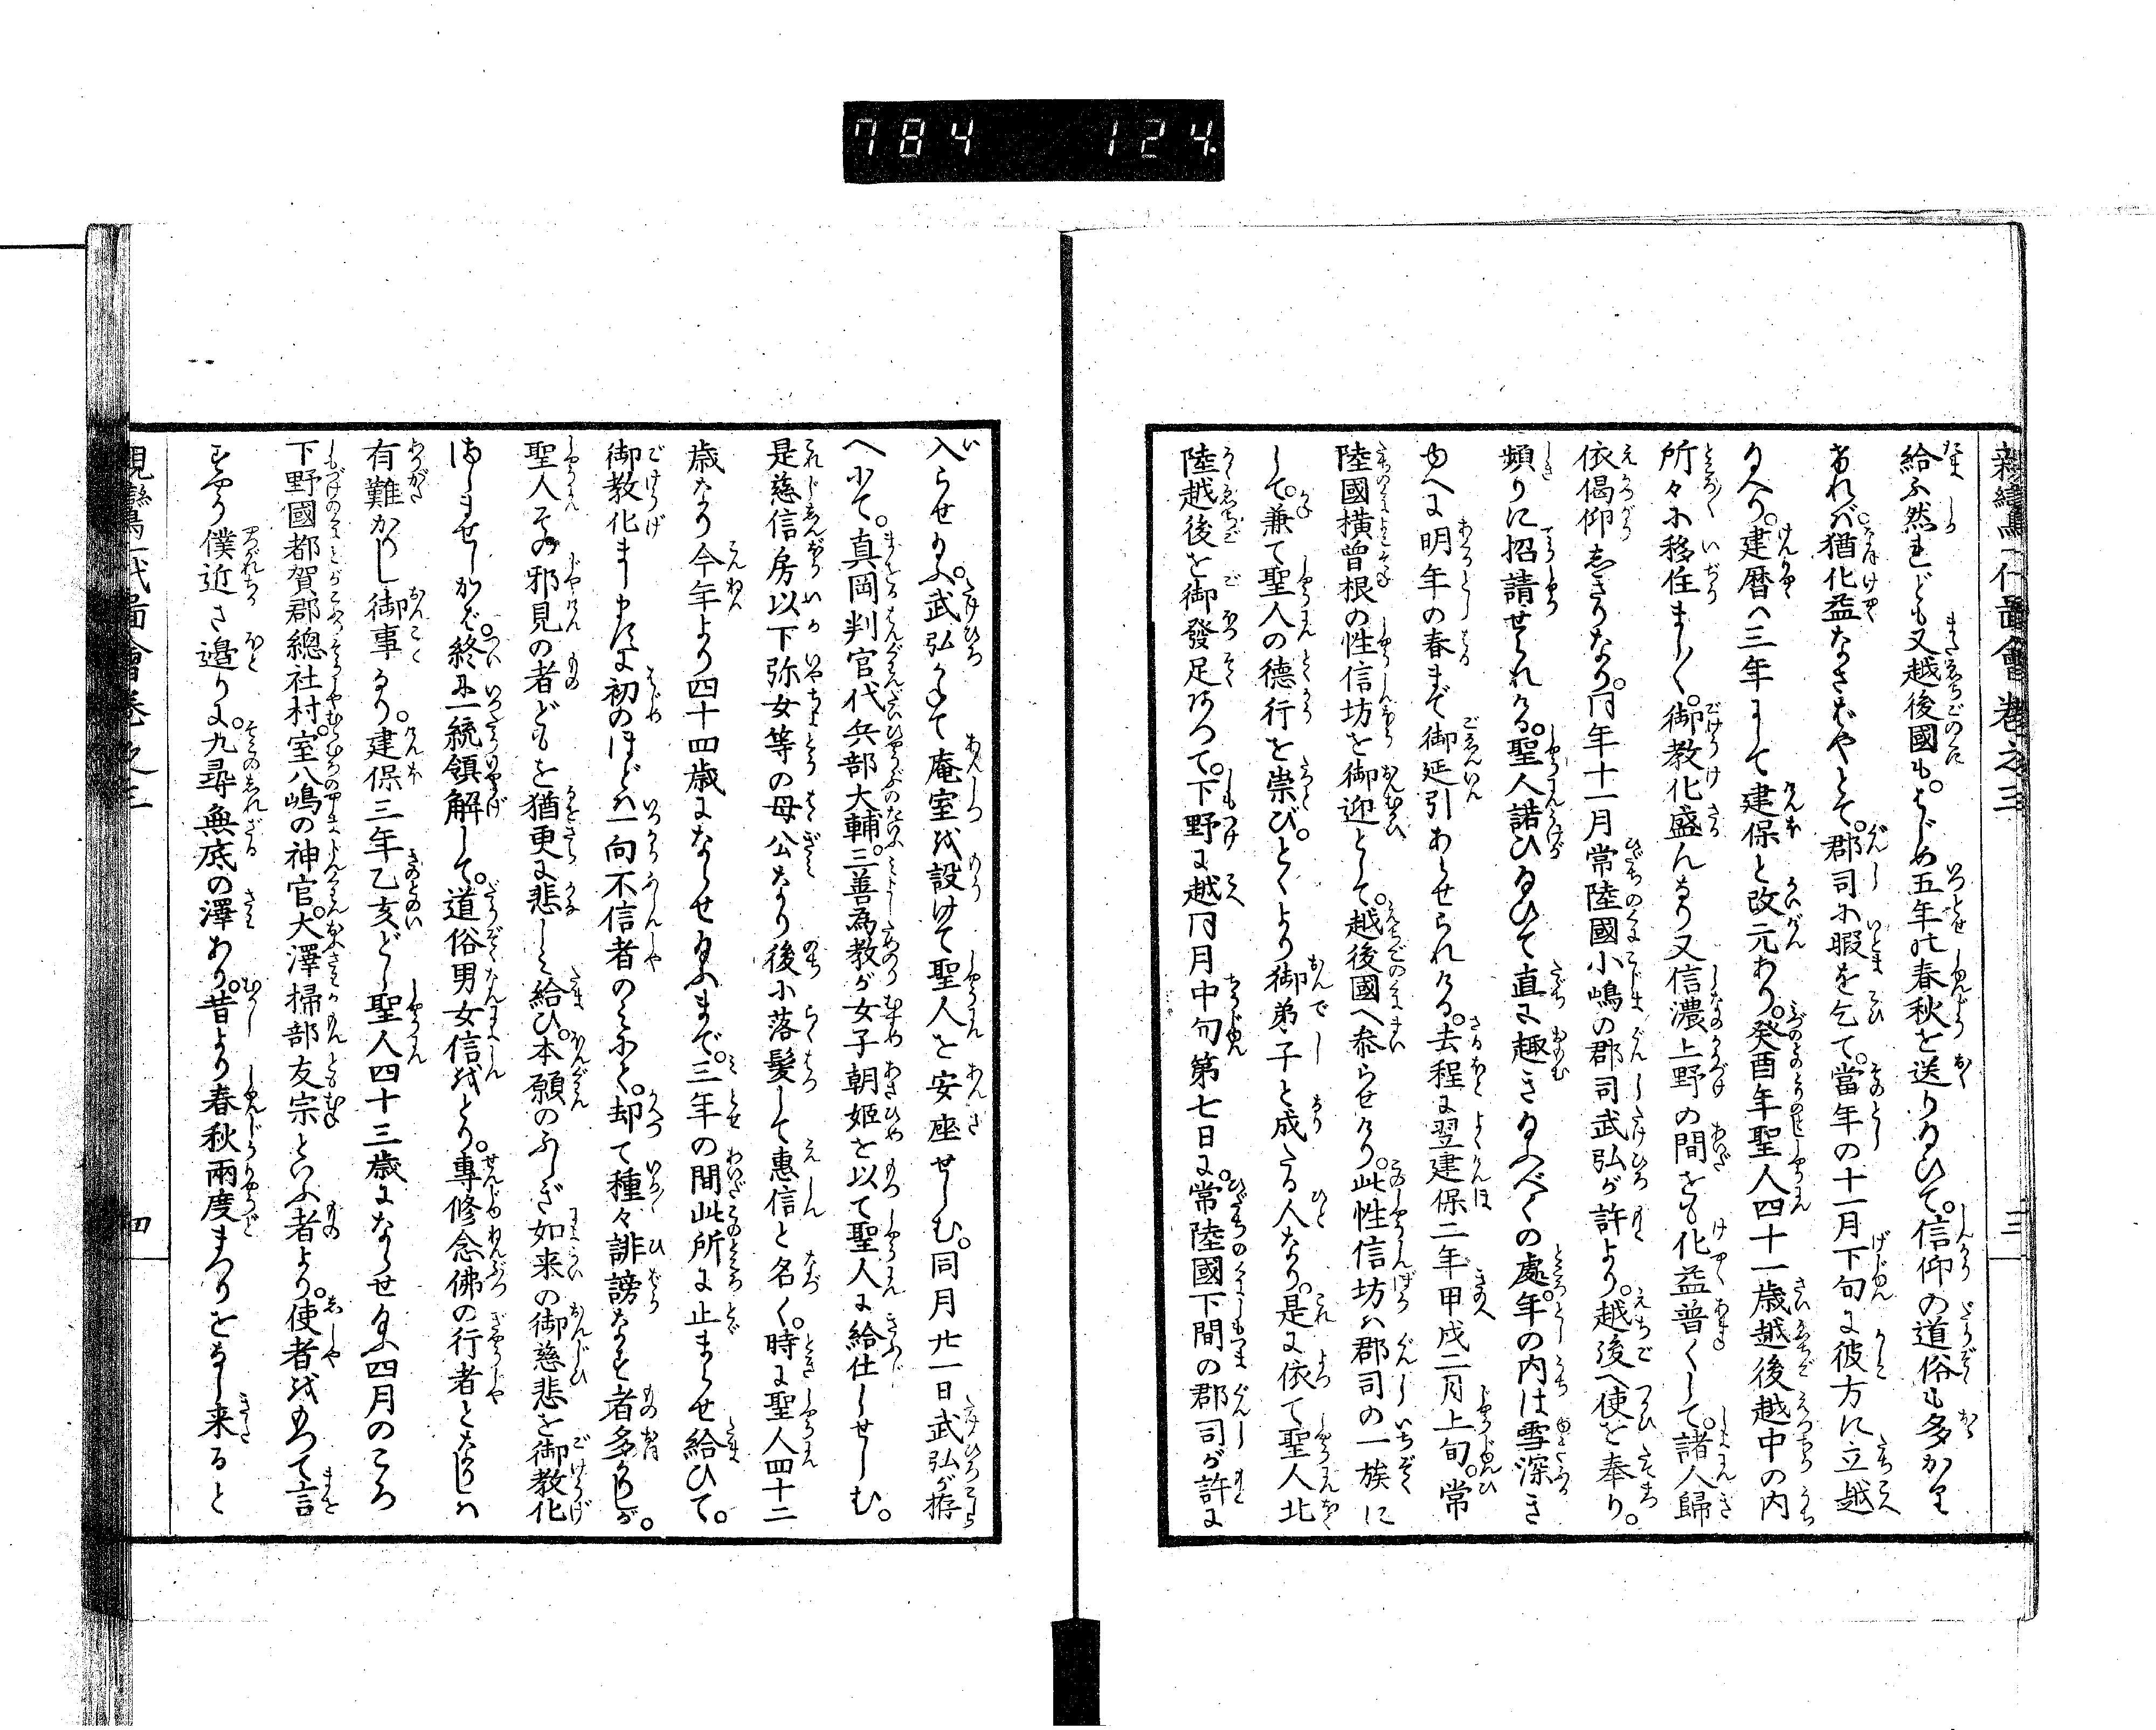 784 124
親鸞聖人一代圖會巻之三 三
給ふ然れども又越後國も。はじめ五年の春秋を送り給ひて。信仰の道俗も多かり
ければ。猶化益なさばやとて。郡司に暇を乞て。當年の十一月下旬に彼方に立越
給へり。建暦ハ三年にして建保と改元あり。癸酉年聖人四十一歳越後越中の内
所々に移住まし〳〵。御教化盛んなり又信濃上野の間をも化益普くして。諸人歸
依偈仰しきりなり。同年十一月常陸國小嶋の郡司武弘が許より。越後へ使を奉り。
頻りに招請せられける。聖人諾ひ給ひて直に趣き給ふべくの處。年の内は雪深き
ゆへに明年の春まで御延引あらせられける。去程に翌建保二年甲戌二月上旬。常
陸國横曽根の性信坊を御迎として。越後國へ参らせけり。此性信坊ハ郡司の一族に
して。兼て聖人の德行を崇び。とくより御弟子と成たる人なり。是に依て聖人北
陸越後を御發足ありて。下野に越同月中旬第七日に。常陸國下間の郡司が許に
入らせ給ふ。武弘かねて庵室を設けて聖人を安座せしむ。同月廿一日武弘が拵
へにて。真岡判官代兵部大輔。三善為教が女子朝姫を以て聖人に給仕しせしむ。
是慈信房以下弥女等の母公なり後に落髮して惠信と名く。時に聖人四十二
歳なり今年より四十四歳にならせ給ふまで。三年の間此所に止まらせ給ひて。
御教化ましますに初のほどハ一向不信者のみにて。却て種々誹謗なす者多かりしが。
聖人その邪見の者どもを猶更に悲しみ給ひ。本願のふしぎ如来の御慈悲を御教化
ましませしかば。終に一統領解して。道俗男女信をとり。專修念佛の行者となりしハ
有難かりし御事なり。建保三年乙亥どし聖人四十三歳にならせ給ふ四月のころ
下野國都賀郡總社村。室八嶋の神官。大澤掃部友宗といふ者より。使者をもつて言
すやう僕近き邊りに。九尋無底の澤あり。昔より春秋兩度まつりをなし来ると
親鸞聖人一代圖會巻之三 四